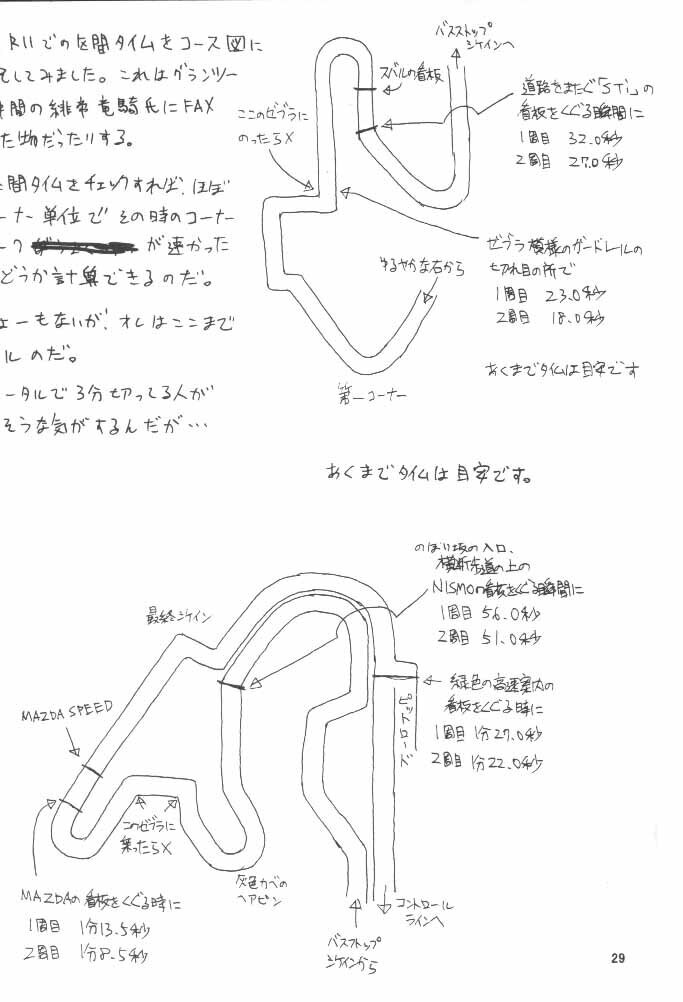 R11での区間タイムをコース図に
してみました。これはグランツー
仲間の緋帝竜騎氏にFAX
た物だったりする。
間タイムをチェックすれば、ほぼ
ーナー単位でその時のコーナー
が速かった
どうか計算できるのだ。
ょーもないが、オレはここまで
ルのだ。
ータルで3分切ってる人が
そうな気がするんだが…
バスストップ
シケインへ
スバルの看板
道路をまたぐ「STi」の
看板をくぐる瞬間に
1周目 32.0秒
2周目 27.0秒
ここのゼブラに
のったら×
ゼブラ模様のガードレールの
切れ目の所で
1周目 23.0秒
2周目 18.0秒
ゆるやかな右から
第一コーナー
あくまでタイムは目安です
あくまでタイムは目安です。
のぼり坂の入口、
横断歩道の上の
NISMOの看板をくぐる瞬間に
1周目 56.0秒
2周目 51.0秒
最終シケイン
緑色の高速案内の
看板をくぐる時に
1周目 1分27.0秒
2周目 1分22.0秒
ピットロード
MAZDA SPEED
このゼブラに
乗ったら×
灰色カベの
ヘアピン
MAZDAの看板をくぐる時に
1周目 1分13.5秒
2周目 1分8.5秒
バスストップ
シケインから
コントロール
ラインへ
29